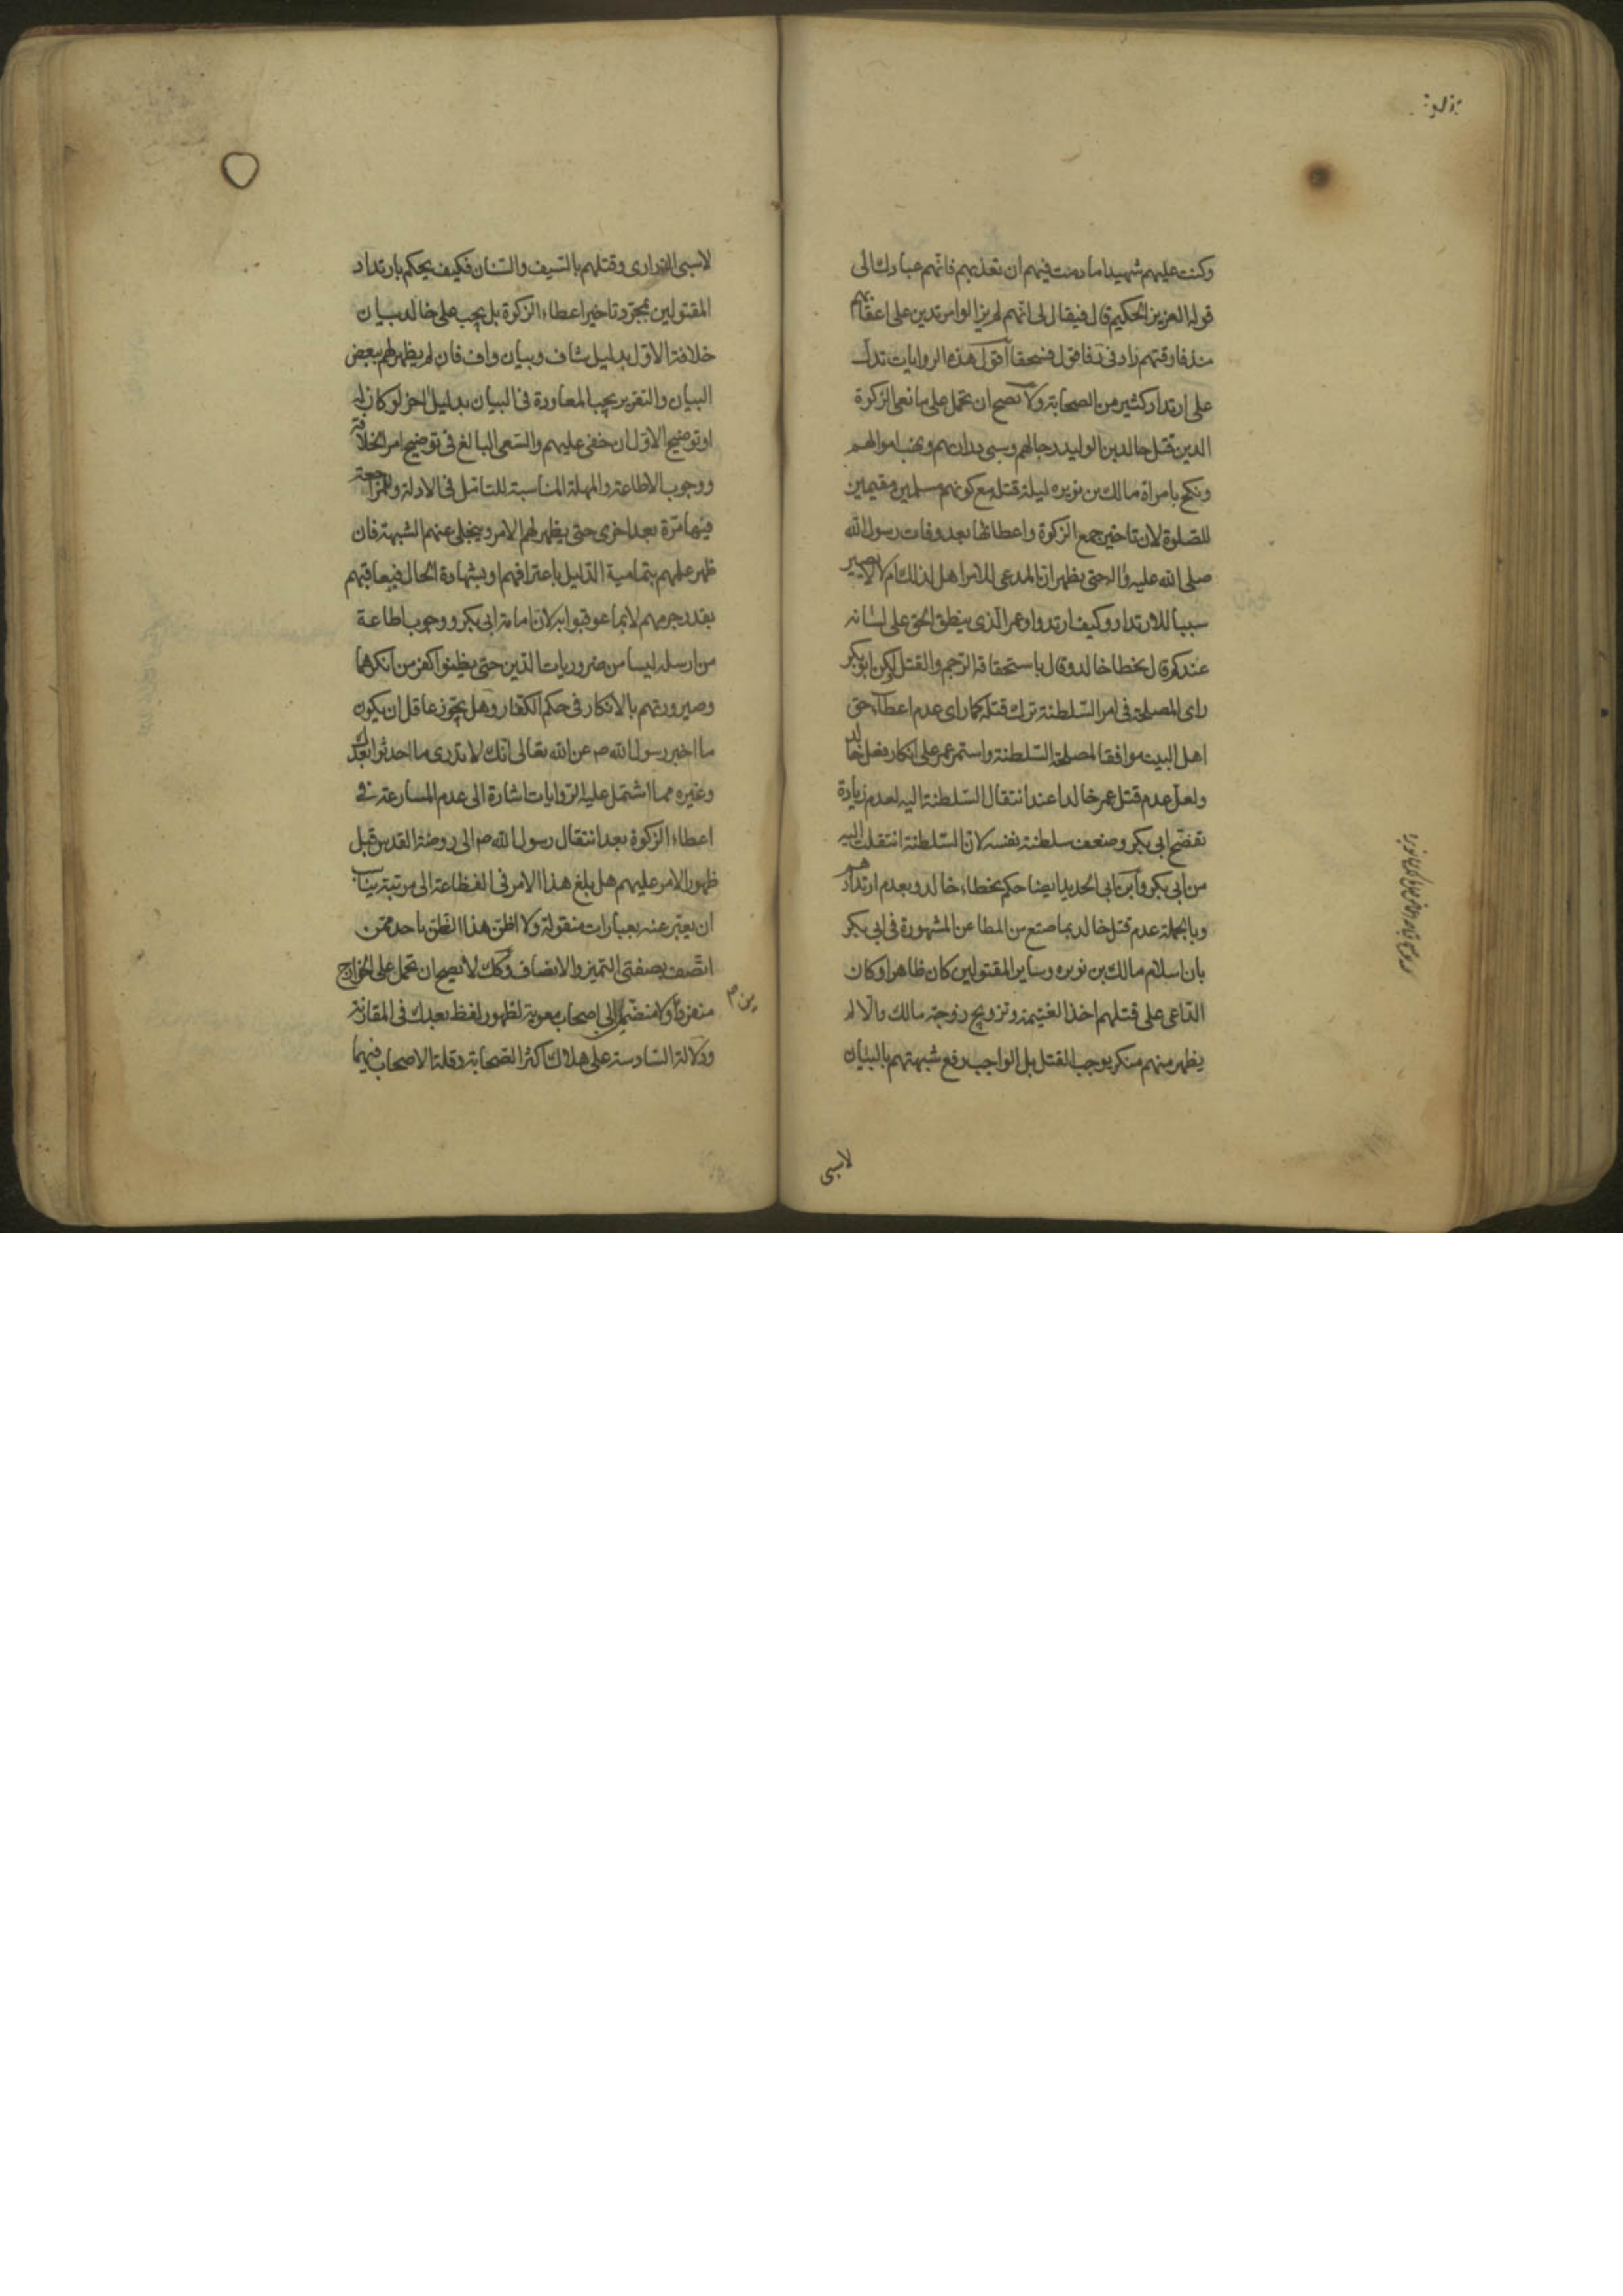 وكنت عليهم شهيدا ما دمت فيهم ان تعذبهم فانهم عبادك الى
قوله العزيز الحكيم قال فيقال لى انهم لم يزالوا مرتدين على اعقابهم
منذ فارقتهم زاد فى فاقول فسحقا اقول هذه الروايات تدل
على ارتداد كثير من الصحابة ولا تصح ان تحمل على مانعى الزكوة
الدين قتل خالد بن الوليد رجالهم وسبى ونهب اموالهم
ونكح بامراة مالك بن نويره ليلة قتله مع كونهم مسلمين مقيمين
للصلوة لان تاخير جمع الزكوة واعطائها بعد وفات رسول الله
صلى الله عليه واله حتى يظهر ان المدعى للامر اهل لذلك ام لا لا يصير
سببا للارتداد وكيف ارتدوا وعمر الذى ينطق الحق على لسانه
عندكم قال بخطا خالد وقال باستحقاقه الرجم والقتل لكن ابو بكر
راى المصلحة فى امر السلطنة ترك قتله كما راى عدم اعطاء حق
اهل البيت موافقا لمصلحة السلطنة واستمر عمر على انكار فعل خالد
ولعل عدم قتل عمر خالدا عند انتقال السلطنة اليه لعدم زيادة
تفضح ابى بكر وضعف سلطنة نفسه لان السلطنة انتقلت اليه
من ابى بكر وابن ابى الحديد ايضا حكم بخطاء خالد وبعدم ارتدادهم
وبالجملة عدم قتل خالد بما صنع من المطاعن المشهورة فى ابى بكر
بان اسلام مالك بن نويره وساير المقتولين كان ظاهرا وكان
الداعى على قتلهم اخذ الغنيمة وتزويج زوجة مالك والا لم
يظهر منهم منكر يوجب القتل بل الواجب رفع شبهتهم بالبيان
لا سبى
لا سبى الذرارى وقتلهم بالسيف والسنان فكيف يحكم بارتداد
المقتولين بمجرد تاخير اعطاء الزكوة بل يجب على خالد بيان
خلافة الاول بدليل شاف وبيان واف فان لم يظهر لهم بعض
البيان والتقرير يجب المعاودة فى البيان بدليل اخر لو كان له
او توضيح الاول ان خفى عليهم والسعى البالغ فى توضيح امر الخلافة
ووجوب الاطاعة والمهلة المناسبة للتامل فى الادلة والمراجعة
فيها مرة بعد اخرى حتى يظهر لهم الامر وينجلى عنهم الشبهة فان
ظهر عليهم بتمامية الدليل باعترافهم او بشهادة الحال فيعاقبهم
بقدر جرمهم لا بما عوقبوا به لان امامة ابى بكر ووجوب اطاعة
من ارسله ليسا من ضروريات الدين حتى يظنوا كفر من انكرهما
وصيرورتهم بالانكار فى حكم الكفار وهل يجوز عاقل ان يكون
ما اخبر رسول الله ص عن الله تعالى انك لا تدرى ما احدثوا بعدك
وغيره مما اشتمل عليه الروايات اشارة الى عدم المسارعة فى
اعطاء الزكوة بعد انتقال رسول الله ص الى روضة القدس قبل
ظهور الامر عليهم هل بلغ هذا الامر فى الفظاعة الى مرتبة يناسب
ان يعبر عنه بعبارات منقولة ولا اظن هذا الظن باحد ممن
اتصف بصفتى التميز والانصاف وكك لا تصح ان تحمل على الخوارج
منفردا ولا منضما الى اصحاب معوية لظهور لفظ بعدك فى المقارنة
ودلالة السادسة على هلاك اكثر الصحابة وقلة الاصحاب فيهما